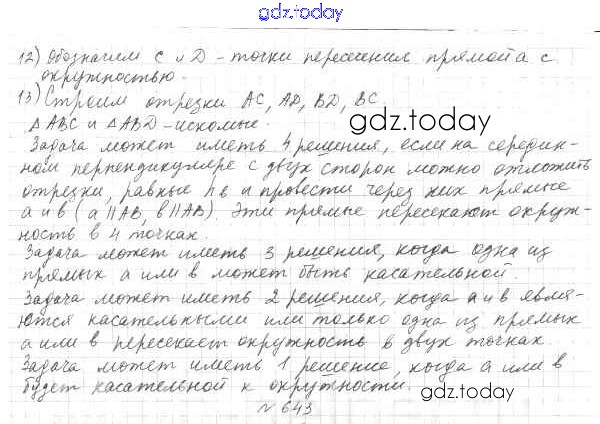 gdz.today
12) Обозначим C и D - точки пересечения прямой a с
окружностью.
13) Строим отрезки AC, AD, BD, BC.
△ABC и △ABD - искомые.
gdz.today
Задача может иметь 4 решения, если на середин-
ном перпендикуляре с двух сторон можно отложить
отрезки, равные hв и провести через них прямые
a и в (a||AB, в||AB). Эти прямые пересекают окруж-
ность в 4 точках.
Задача может иметь 3 решения, когда одна из
прямых a или в может быть касательной.
Задача может иметь 2 решения, когда a и в явля-
ются касательными или только одна из прямых
a или в пересекает окружность в двух точках.
Задача может иметь 1 решение, когда a или в
будет касательной к окружности.
gdz.today
№ 643